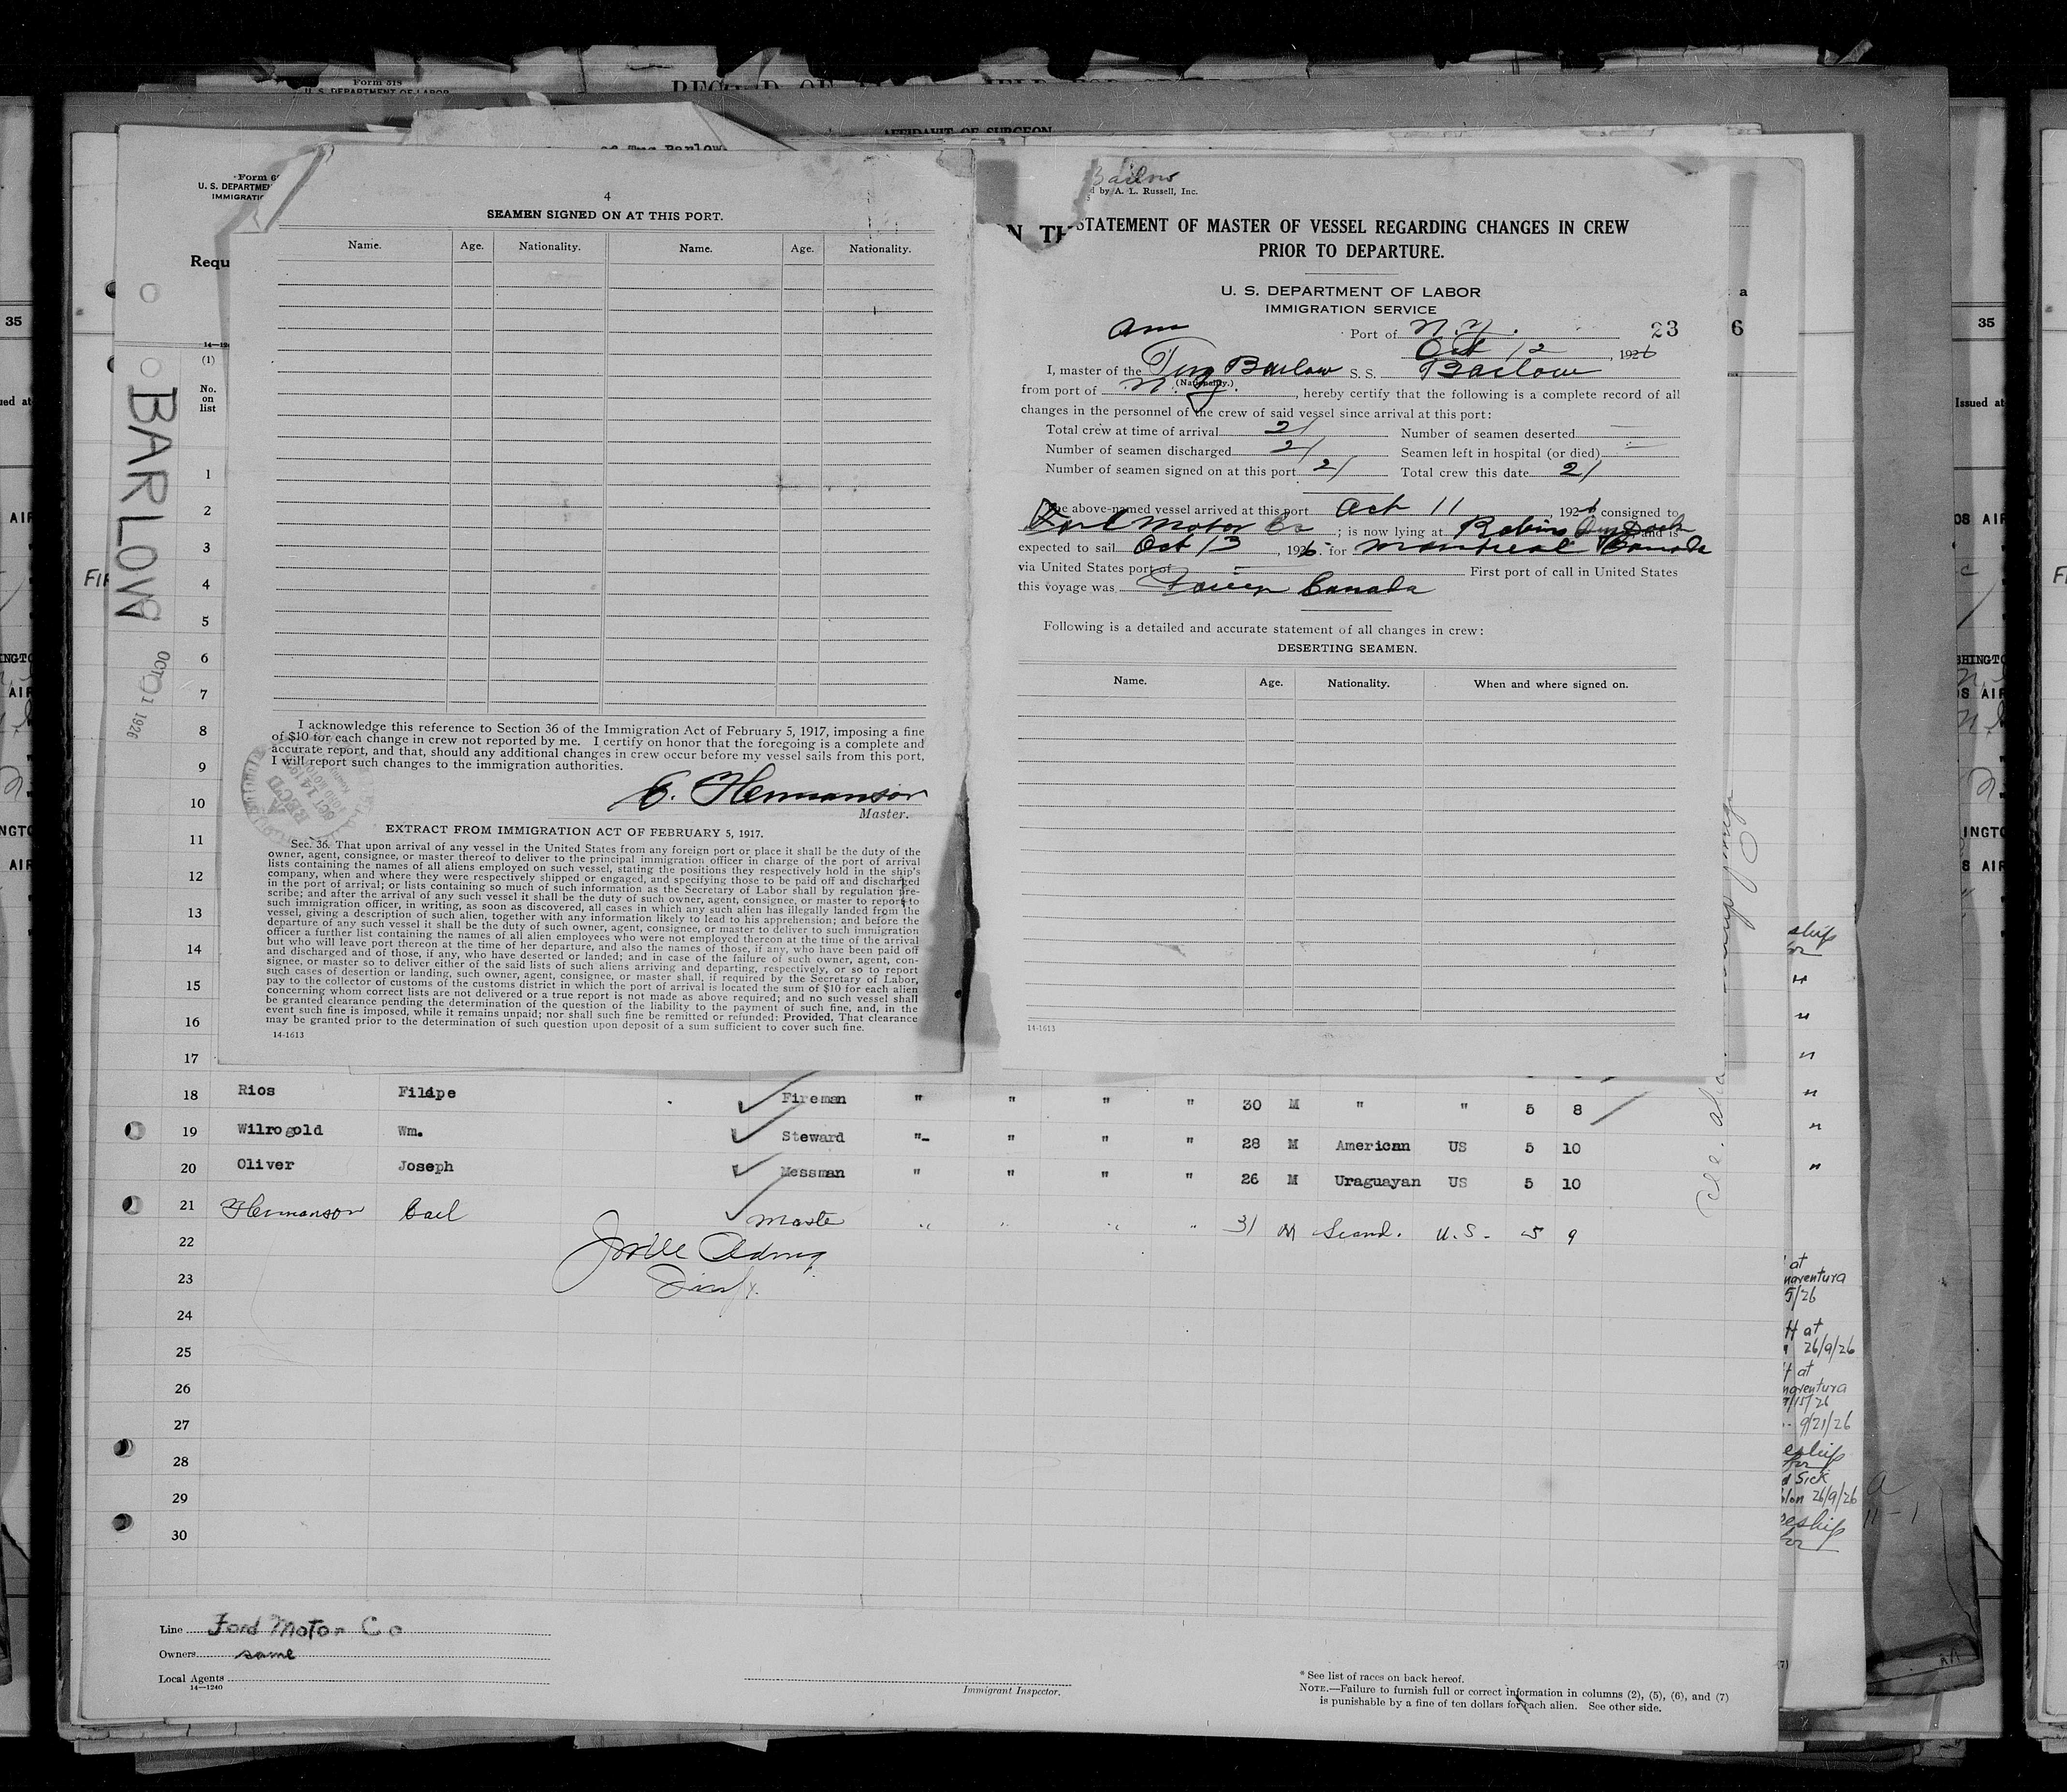 Form 518
U. S. DEPARTMENT OF LABOR
AFFIDAVIT OF SURGEON
Tug Barlow
U. S. DEPARTME
IMMIGRATIO
Requ
(1)
No.
on
list
BARLOW
OCT 11 1926
4
SEAMEN SIGNED ON AT THIS PORT.
Name. Age. Nationality. Name. Age. Nationality.
I acknowledge this reference to Section 36 of the Immigration Act of February 5, 1917, imposing a fine
of $10 for each change in crew not reported by me. I certify on honor that the foregoing is a complete and
accurate report, and that, should any additional changes in crew occur before my vessel sails from this port,
I will report such changes to the immigration authorities.
C. Hermanson
Master.
EXTRACT FROM IMMIGRATION ACT OF FEBRUARY 5, 1917.
Sec. 36. That upon arrival of any vessel in the United States from any foreign port or place it shall be the duty of the
owner, agent, consignee, or master thereof to deliver to the principal immigration officer in charge of the port of arrival
lists containing the names of all aliens employed on such vessel, stating the positions they respectively hold in the ship's
company, when and where they were respectively shipped or engaged, and specifying those to be paid off and discharged
in the port of arrival; or lists containing so much of such information as the Secretary of Labor shall by regulation pre-
scribe; and after the arrival of any such vessel it shall be the duty of such owner, agent, consignee, or master to report to
such immigration officer, in writing, as soon as discovered, all cases in which any such alien has illegally landed from the
vessel, giving a description of such alien, together with any information likely to lead to his apprehension; and before the
departure of any such vessel it shall be the duty of such owner, agent, consignee, or master to deliver to such immigration
officer a further list containing the names of all alien employees who were not employed thereon at the time of the arrival
but who will leave port thereon at the time of her departure, and also the names of those, if any, who have been paid off
and discharged and of those, if any, who have deserted or landed; and in case of the failure of such owner, agent, con-
signee, or master so to deliver either of the said lists of such aliens arriving and departing, respectively, or so to report
such cases of desertion or landing, such owner, agent, consignee, or master shall, if required by the Secretary of Labor,
pay to the collector of customs of the customs district in which the port of arrival is located the sum of $10 for each alien
concerning whom correct lists are not delivered or a true report is not made as above required; and no such vessel shall
be granted clearance pending the determination of the question of the liability to the payment of such fine, and, in the
event such fine is imposed, while it remains unpaid; nor shall such fine be remitted or refunded: Provided, That clearance
may be granted prior to the determination of such question upon deposit of a sum sufficient to cover such fine.
14-1613
Barlow
d by A. L. Russell, Inc.
STATEMENT OF MASTER OF VESSEL REGARDING CHANGES IN CREW
PRIOR TO DEPARTURE.
U. S. DEPARTMENT OF LABOR
IMMIGRATION SERVICE
Am Port of N.Y. 23
Oct 12, 1926
I, master of the Tug Barlow S. S. Barlow
(Nationality.)
from port of N.Y., hereby certify that the following is a complete record of all
changes in the personnel of the crew of said vessel since arrival at this port:
Total crew at time of arrival 21 Number of seamen deserted —
Number of seamen discharged 21 Seamen left in hospital (or died) —
Number of seamen signed on at this port 21 Total crew this date 21
The above-named vessel arrived at this port Oct 11, 1926 consigned to
Ford Motor Co; is now lying at Robins Dry Dock and is
expected to sail Oct 13, 1926 for Montreal Canada
via United States port of — First port of call in United States
this voyage was Canada
Following is a detailed and accurate statement of all changes in crew:
DESERTING SEAMEN.
Name. Age. Nationality. When and where signed on.
14-1613
1
2
3
4
5
6
7
8
9
10
11
12
13
14
15
16
17
18 Rios Filipe Fireman " " " " 30 M " " 5 8
19 Wilrogold Wm. Steward " " " " 28 M American US 5 10
20 Oliver Joseph Messman " " " " 26 M Uraguayan US 5 10
21 Hermanson Carl Master " " " " 31 M Scand. U.S. 5 9
22
23
24
25
26
27
28
29
30
Line Ford Motor Co
Owners same
Local Agents
14—1240
Immigrant Inspector.
* See list of races on back hereof.
NOTE.—Failure to furnish full or correct information in columns (2), (5), (6), and (7)
is punishable by a fine of ten dollars for each alien. See other side.
35
35
Issued at
26/9/26
9/21/26